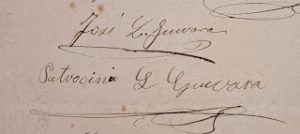 José L. Guevara
Patrocini L Guevara